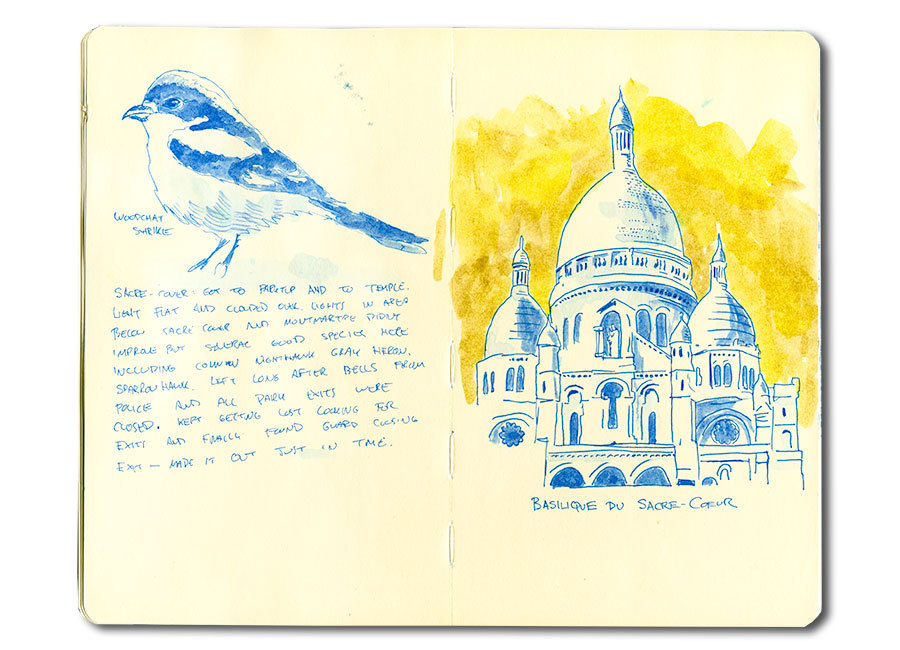 WOODCHAT
SHRIKE
SACRE-COUER: GOT TO AND TO TEMPLE.
LIGHT FLAT AND CLOUDED OVER. LIGHTS IN AREA
BELOW SACRE COUER AND MONTMARTRE DIDNT
IMPROVE BUT SEVERAL GOOD SPECIES HERE
INCLUDING COMMON NIGHTHAWK GRAY HERON,
SPARROWHAWK. LEFT LONG AFTER BELLS FROM
POLICE AND ALL PARK EXITS WERE
CLOSED. KEPT GETTING LOST LOOKING FOR
EXITS AND FINALLY FOUND GUARD CLOSING
EXIT — MADE IT OUT JUST IN TIME.
BASILIQUE DU SACRE-CŒUR